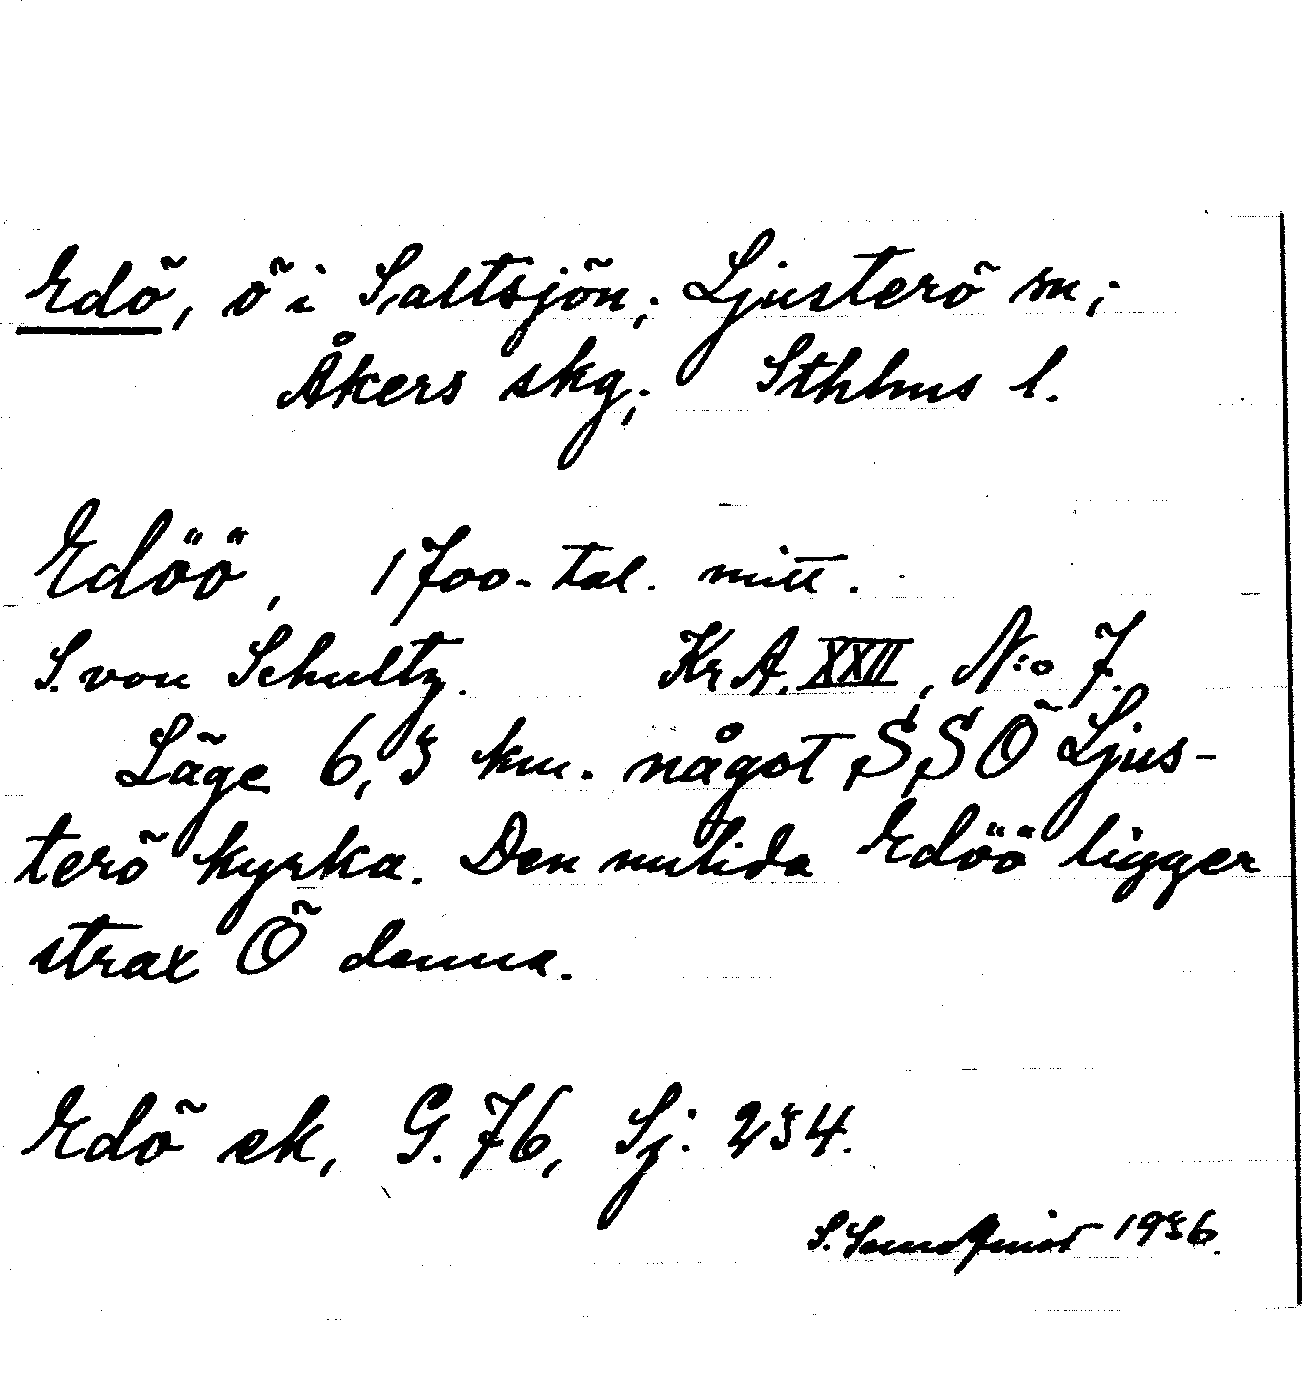 Edö, ö i Saltsjön; Ljusterö sn;
Åkers skg; Sthlms l.
Edöö, 1700-tal. mitt.
S. von Schultz. Kr. A. XXII, N:o 7.
Läge 6,5 km. något SSÖ Ljus-
terö kyrka. Den nutida Edöö ligger
strax Ö denna.
Edö ek, G. 76, Sj: 254.
S. Sundquist 1936.